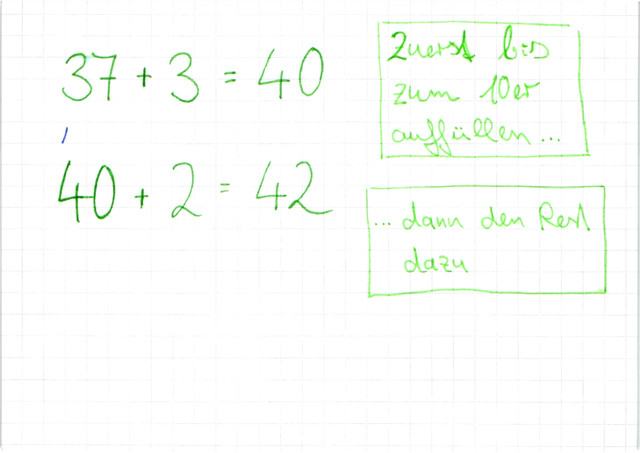 37 + 3 = 40
40 + 2 = 42
Zuerst bis
zum 10er
auffüllen ...
... dann den Rest
dazu